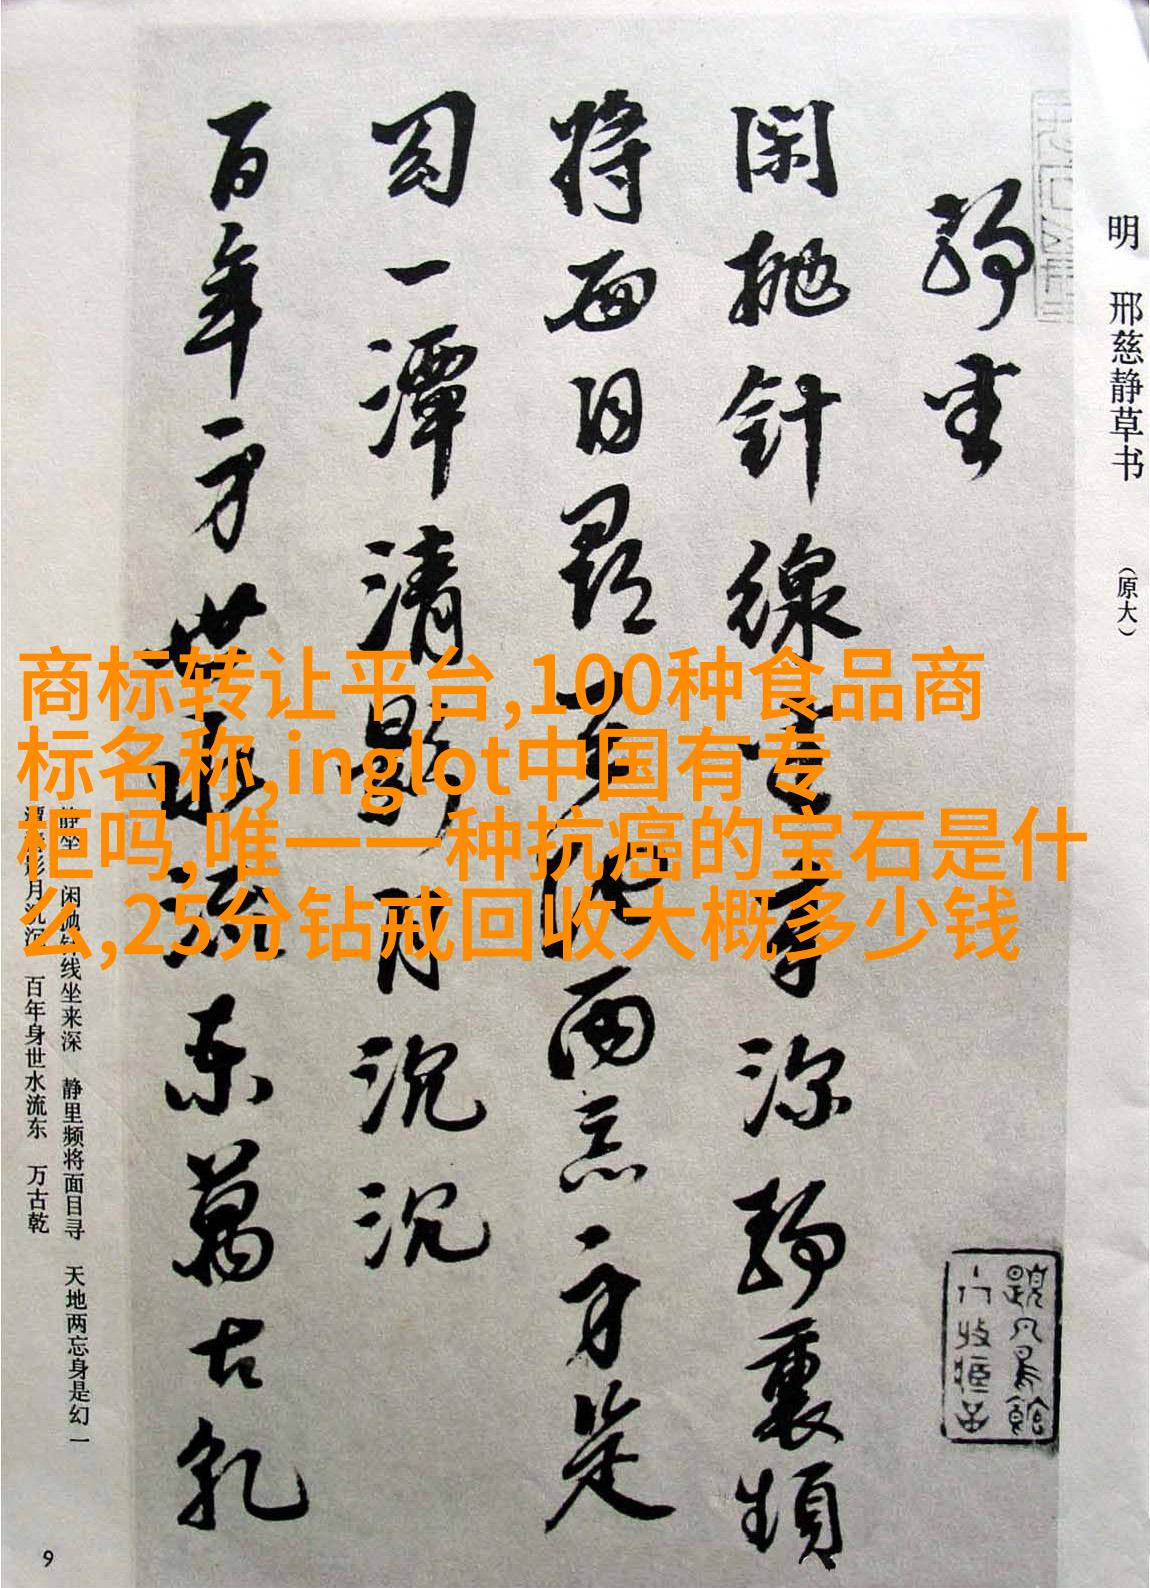 明 邢慈静草书 （原大）
静坐
闲抛针線坐来深静裏頻
将面目尋天地两忘身是
幻一潭清影月沉沉
百年身世水流东萬古乾
商标转让平台,100种食品商
标名称,inglot中国有专
柜吗,唯一一种抗癌的宝石是什
么,25分钻戒回收大概多少钱
静坐 闲抛针线坐来深 静里频将面目寻 天地两忘身是幻 一
潭清影月沉沉 百年身世水流东 万古乾
9